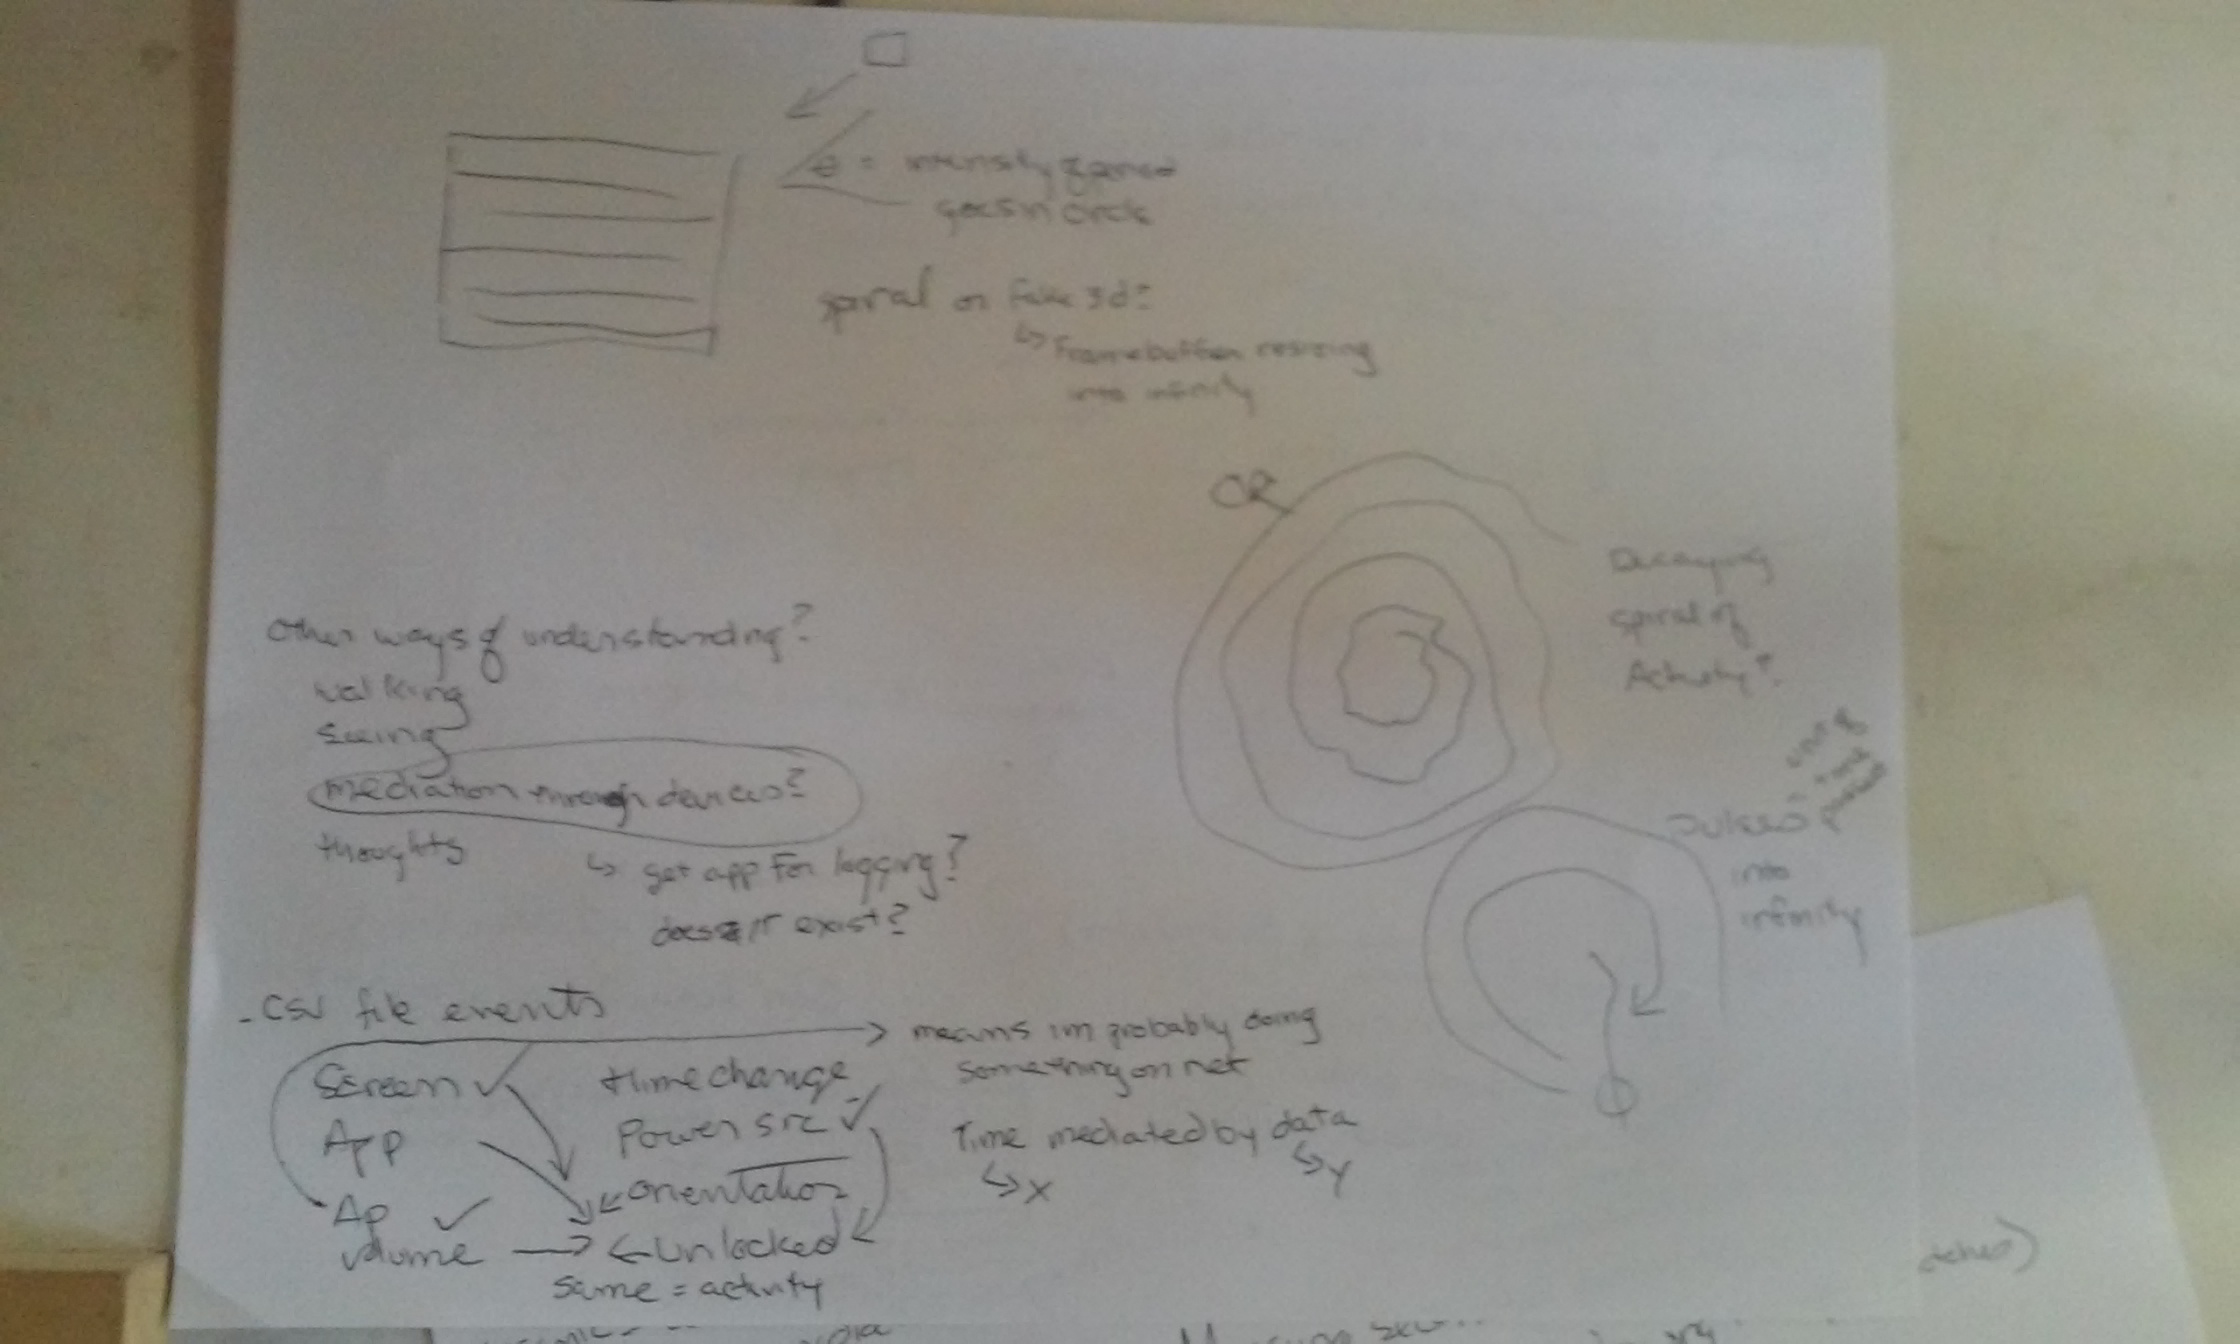 θ = intensity & period
goes in circle
spiral or fake 3d?
↳ Framebuffer resizing
into infinity
OR
Decaying
spiral of
Activity?
Other ways of understanding?
walking
seeing
mediation through devices?
thoughts
↳ get app for logging?
does it exist?
pulses
into
infinity
.csv file events
→ means im probably doing
something on net
Screen ✓
App
Ap ✓
volume → ← unlocked
time change
Power src ✓
← orientation
same = activity
Time mediated by data
↳ x
↳ y